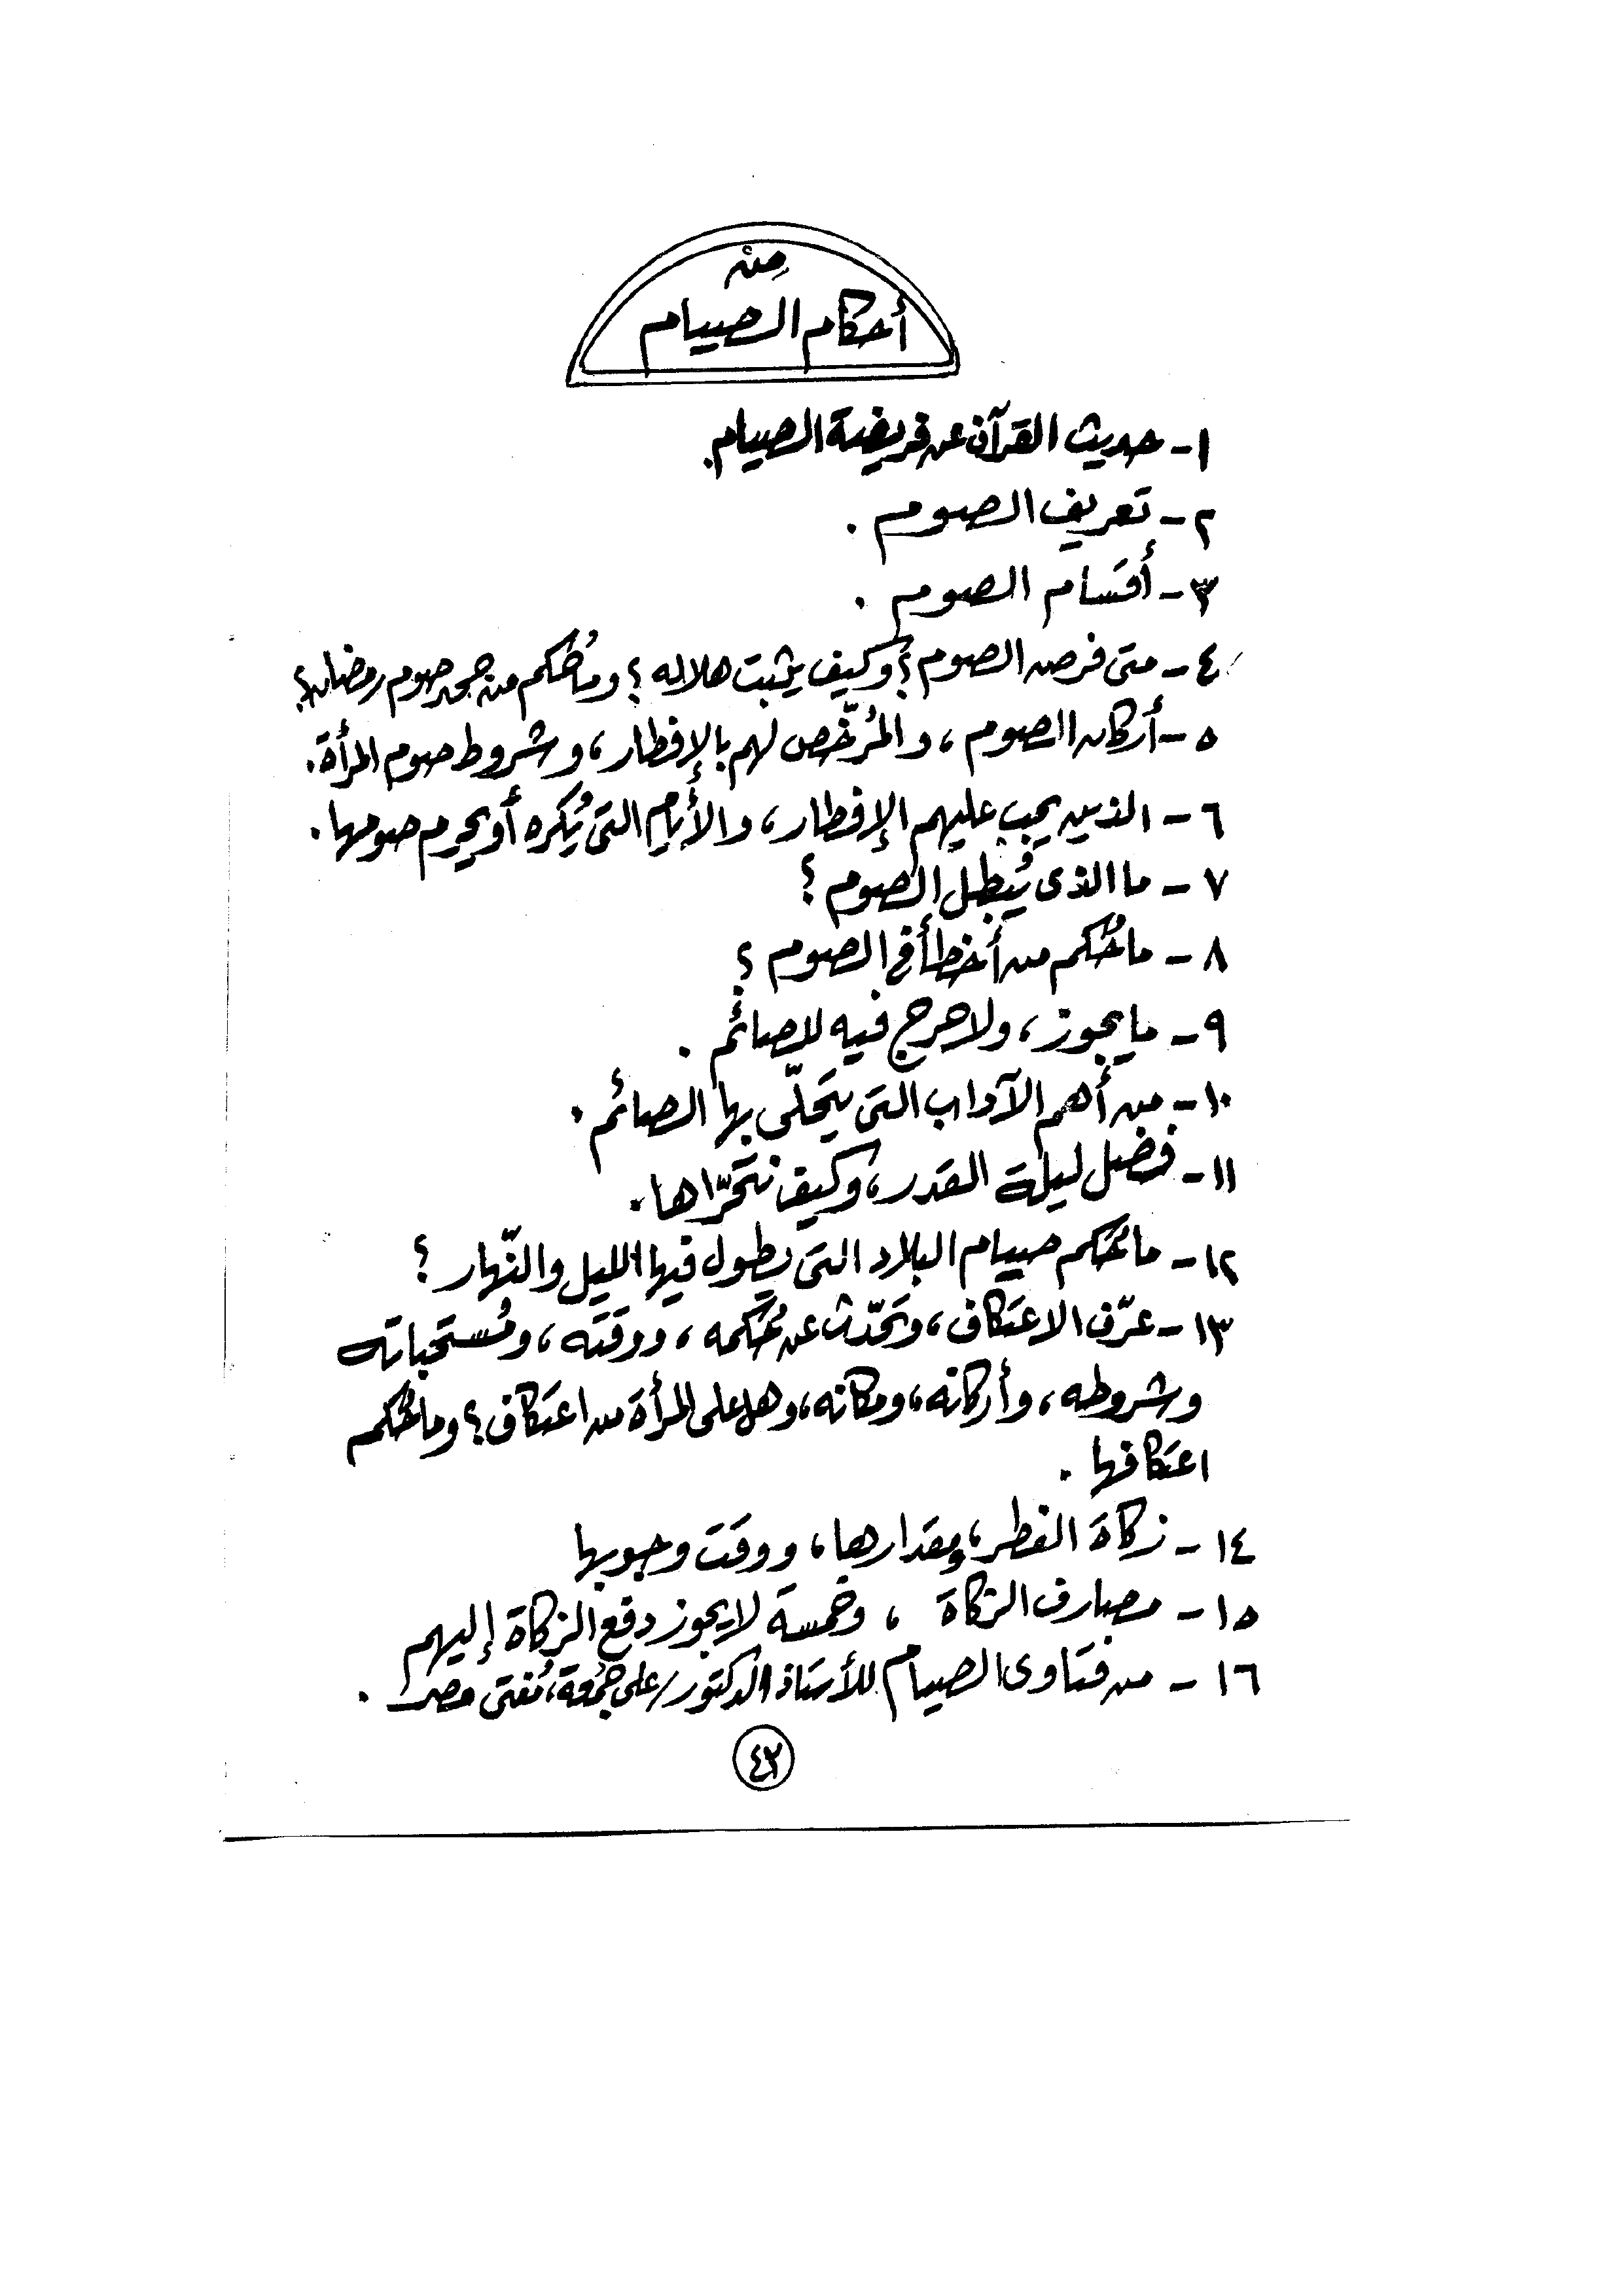 مِنْ
أحكام الصيام
١- حديث القرآن عن فريضة الصيام.
٢- تعريف الصوم .
٣- أقسام الصوم .
٤- متى فرض الصوم؟ وكيف يثبت هلاله؟ وما حُكم من جحد صوم رمضان؟
٥- أركان الصوم، والمُرخّص لهم بالإفطار، وشروط صوم المرأة.
٦- الذين يجب عليهم الإفطار، والأيام التى يُكره أو يحرم صومها.
٧- ما الذى يُبطل الصوم؟
٨- ما حُكم من أخطأ فى الصوم؟
٩- ما يجوز، ولا حرج فيه للصائم .
١٠- من أهم الآداب التى يتحلّى بها الصائم .
١١- فضل ليلة القدر، وكيف نتحرّاها.
١٢- ما حُكم صيام البلاد التى يطول فيها الليل والنّهار؟
١٣- عرّف الاعتكاف، وتحدّث عن حُكمه، ووقته، ومُستحباته
وشروطه، وأركانه، ومكانه، وهل على المرأة من اعتكاف؟ وما حُكم
اعتكافها .
١٤- زكاة الفطر، ومقدارها، ووقت وجوبها
١٥- مصارف الزكاة ، وخمسة لا يجوز دفع الزكاة إليهم
١٦- من فتاوى الصيام للأستاذ الدكتور/ على جُمُعة، مُفتى مصر .
٤٢